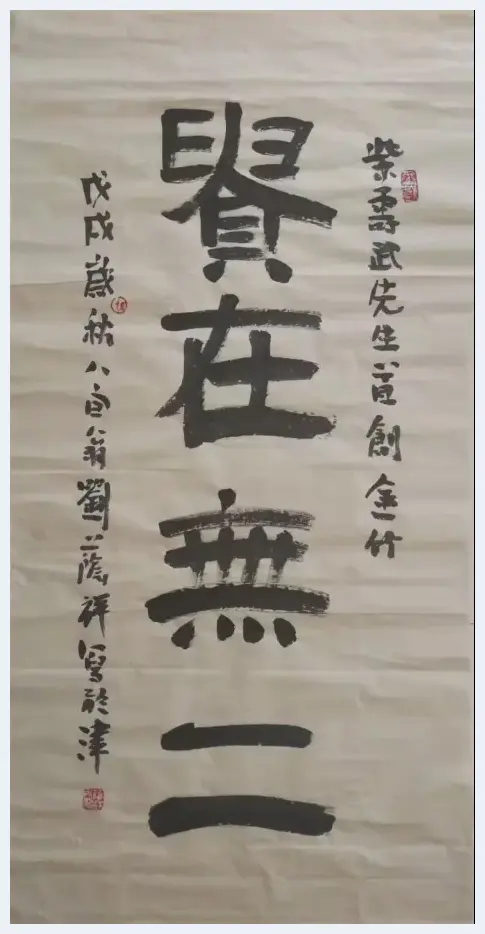 柴壽武先生首創金竹
貴在無二
戊戌歲秋八百翁劉蔭祥寫於津